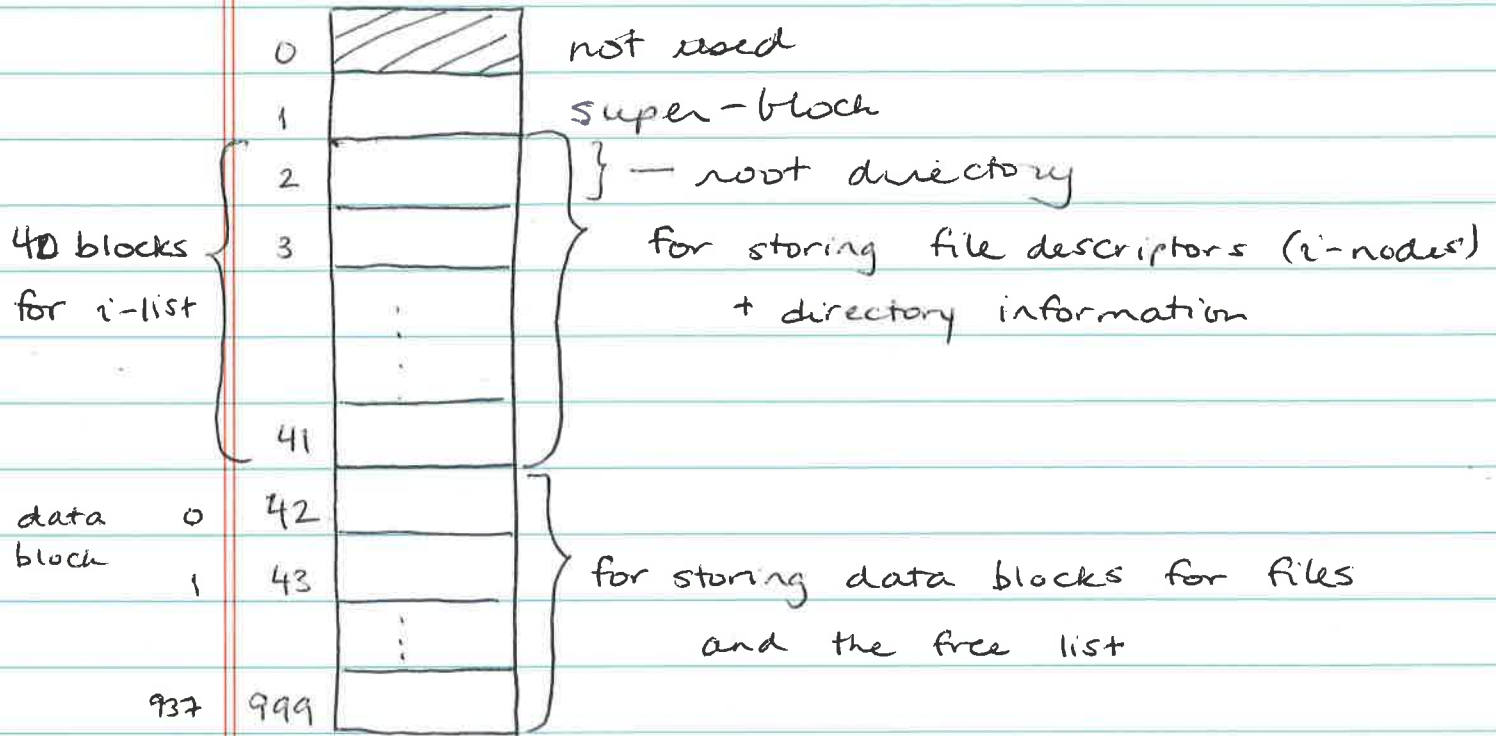 0 not used
1 super-block
2 } — root directory
40 blocks 3 for storing file descriptors (i-nodes)
for i-list + directory information
41
data 0 42
block
1 43 for storing data blocks for files
and the free list
937 999